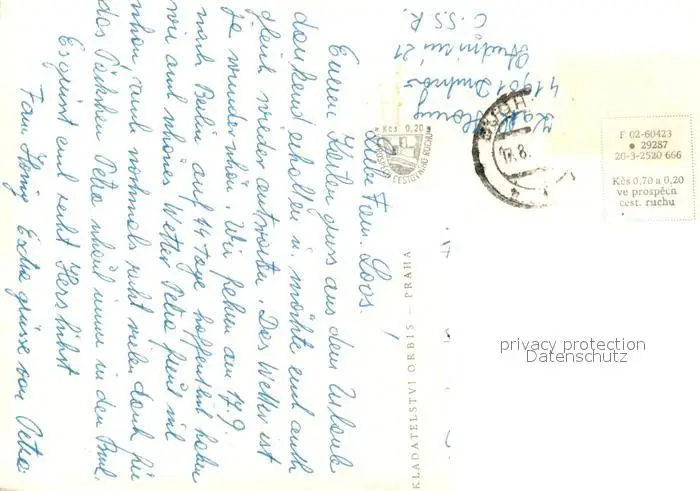 Liebe Fam. Loos.
Eueren Karten gruss aus dem Urlaub
dankend erhalten u. möchte euch auch
gleich wieder antworten. Das Wetter ist
ja wunderschön. Wir fahren am 17.9
nach Berlin auf 14 tage hoffentlich haben
wir auch schönes Wetter Petra freut sich
schon auch nochmals recht vielen dank für
das Päckchen Petra schaut immer in den
Es grüsst euch recht Herzlichst
Fam. König Extra grüsse von Petra
König
41901 Duchcov
21
Č.S.S.R.
Kčs 0,20
VE PROSPĚCH CESTOVNÍHO RUCHU
17.8.
F 02-60423
● 29287
20-3-2520 666
Kčs 0,70 a 0,20
ve prospěch
cest. ruchu
NAKLADATELSTVÍ ORBIS – PRAHA
privacy protection
Datenschutz